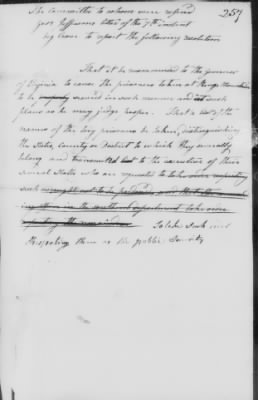 257
The Committee to whom were referred
Gov. Jefferson's letter of the 7th instant
beg leave to report the following resolution
That it be recommended to the governor
of Virginia to cause the prisoners taken at Kings Mountain
to be secured in such manner and such
places as he may judge proper. That a list of the
names of the tory prisoners be taken, distinguishing
the State, County or District to which they severally
belong and transmitted to the executives of their
several States who are requested to take order respecting
such
To take such order
Respecting them as the public Security